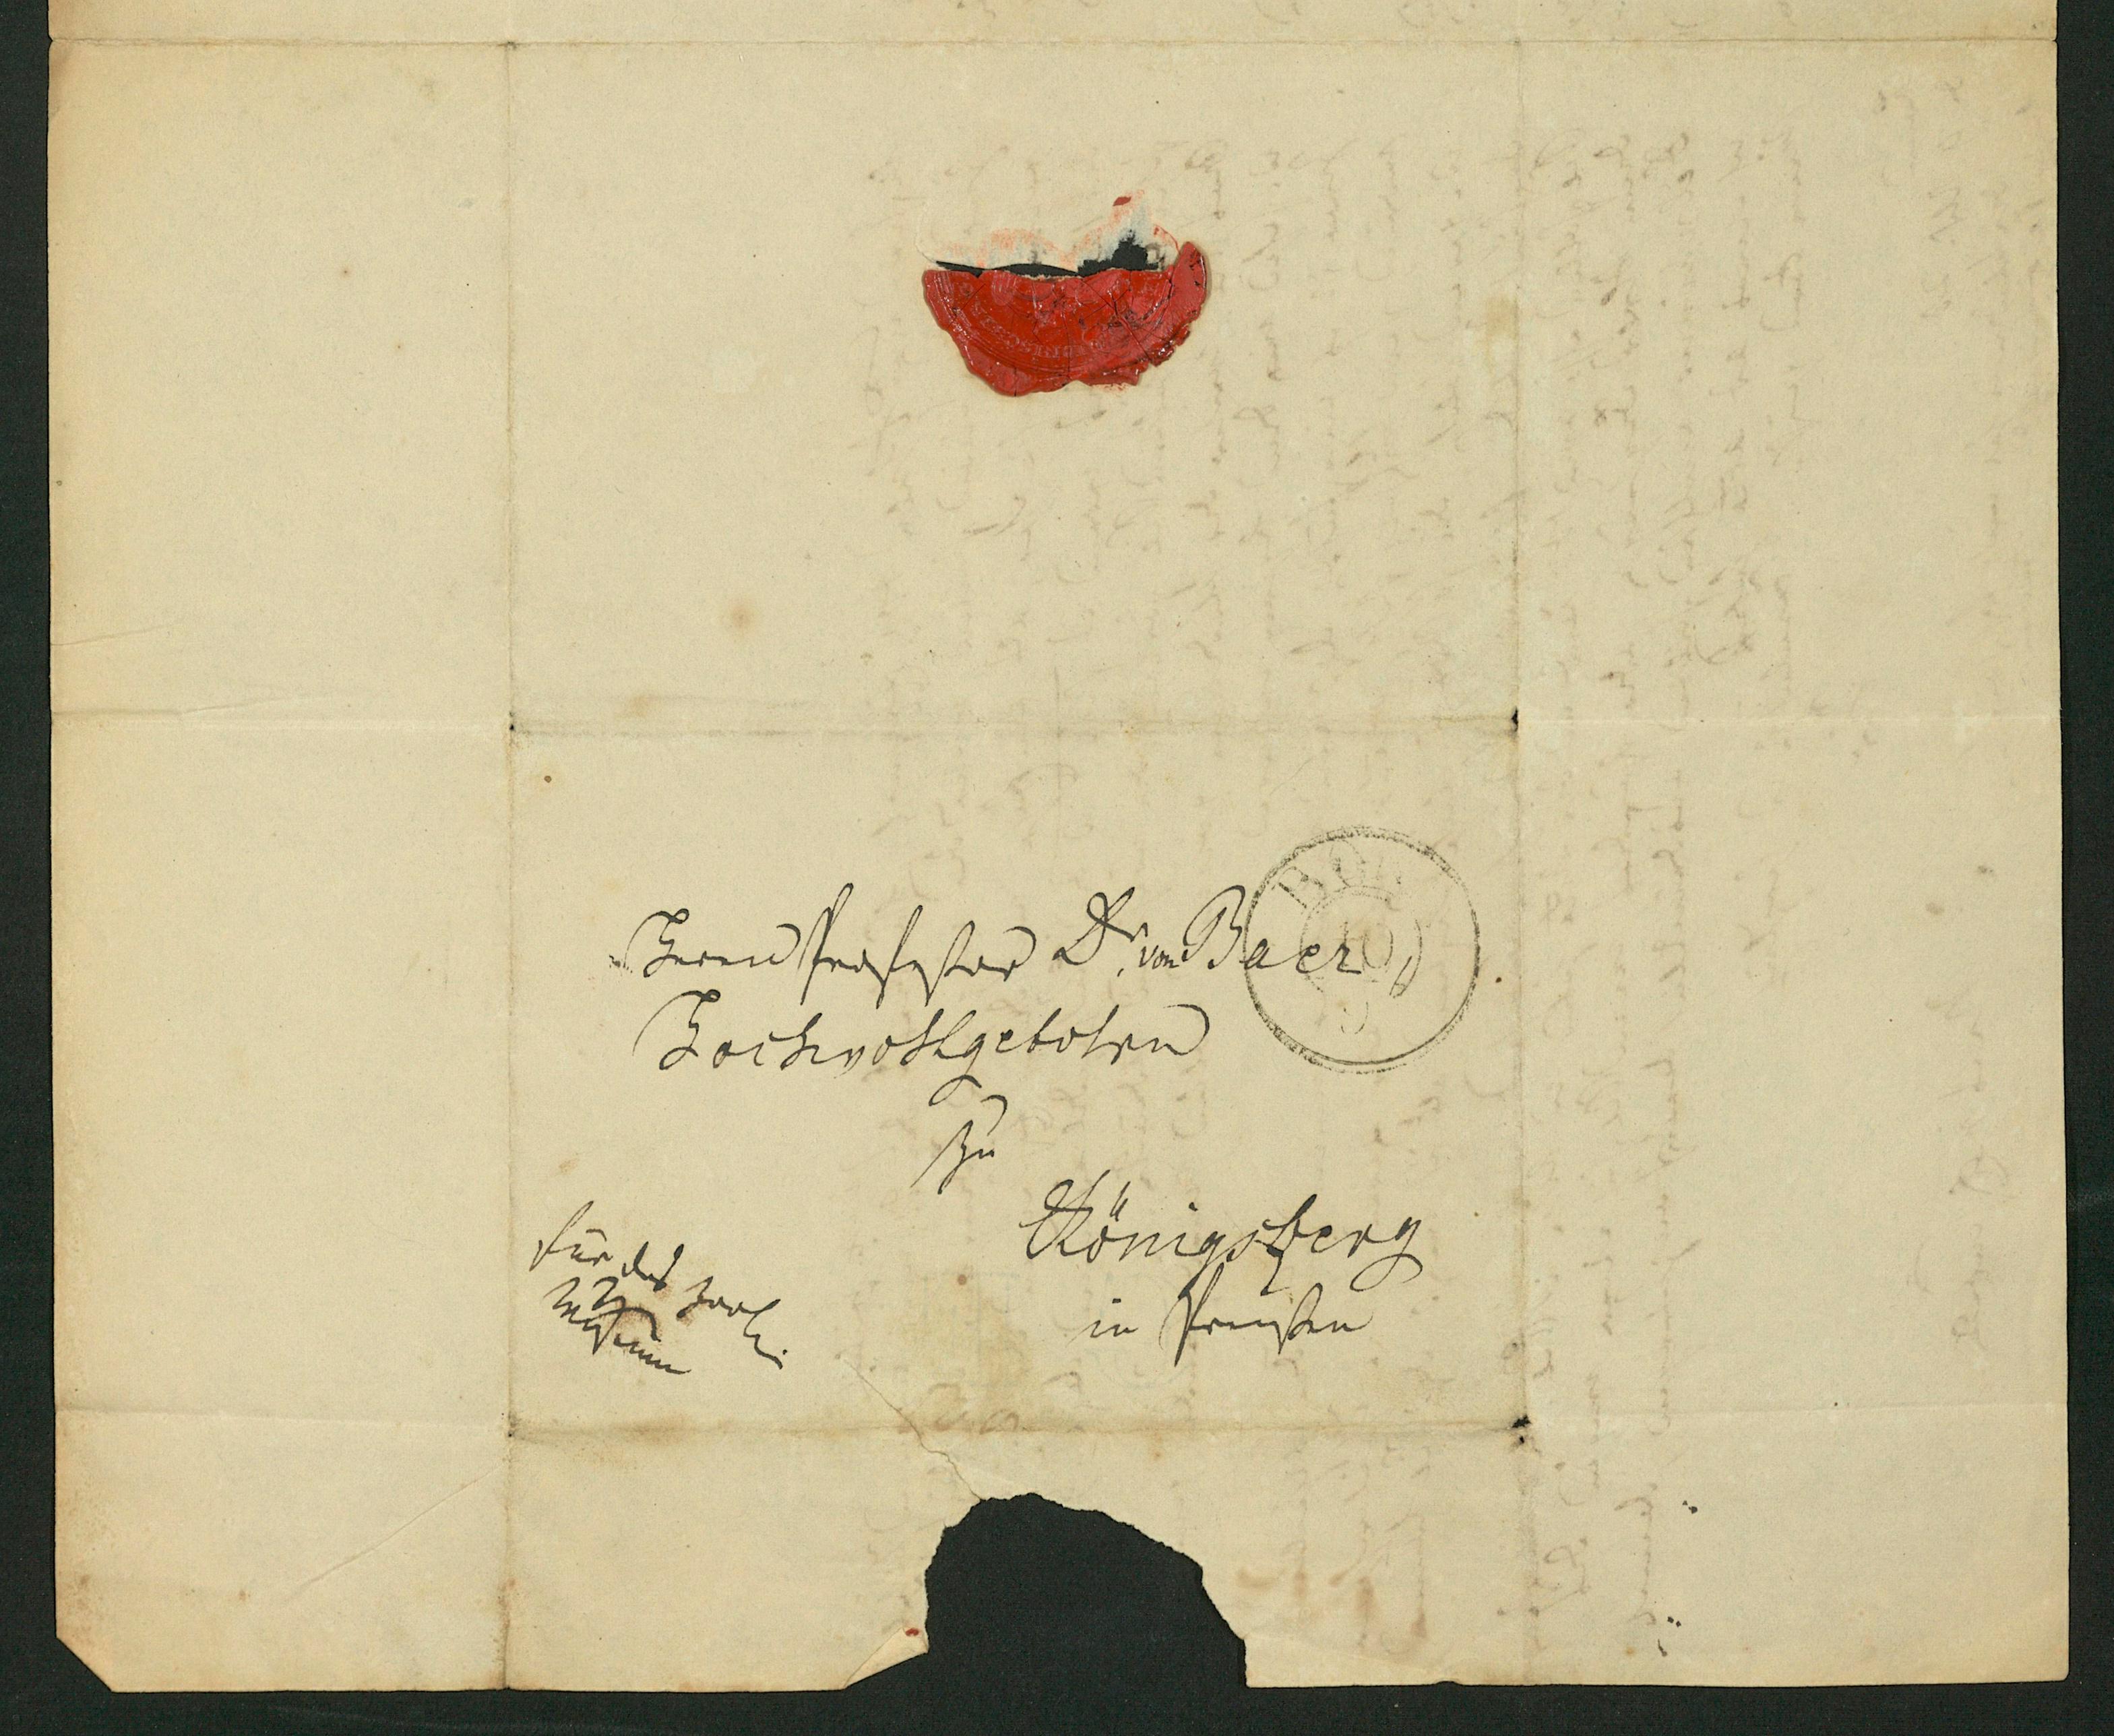 Herrn Professor Dr. von Baer
Hochwohlgeboren
zu
Königsberg
in Preußen
für das zool.
Museum